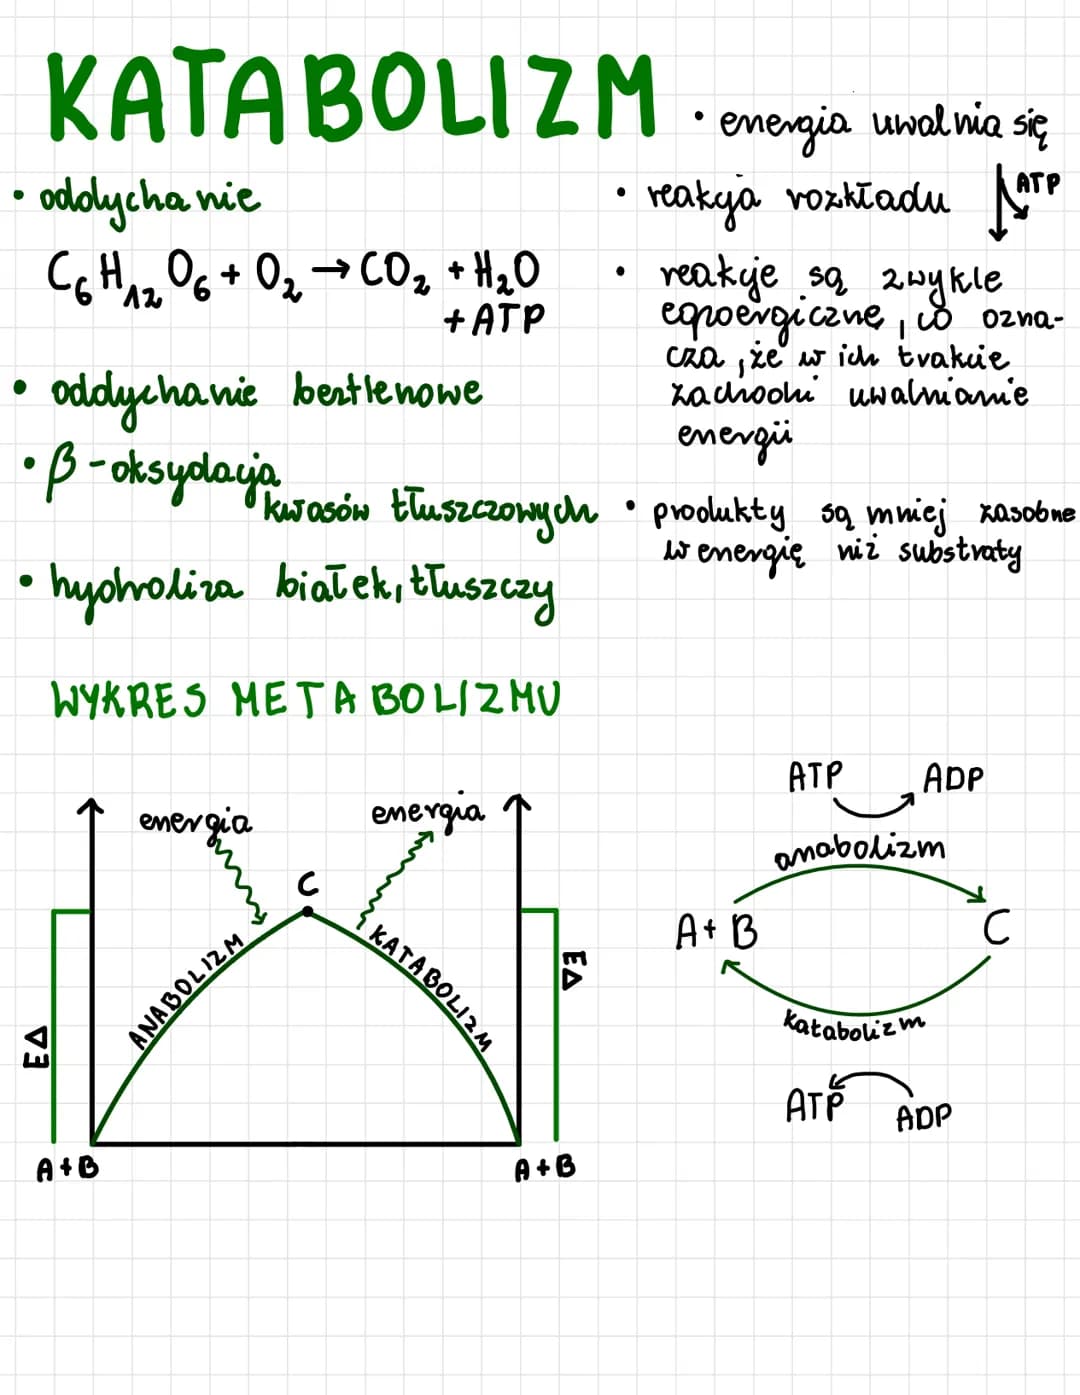 KATABOLIZM
• oddychanie
C₆H₁₂O₆ + O₂ → CO₂ + H₂O
+ ATP
• oddychanie beztlenowe
• β-oksydacja
kwasów tłuszczowych
• hydroliza białek, tłuszczy
• energia uwalnia się
• reakcja rozkładu
ATP
• reakcje są zwykle
egzoergiczne, co ozna-
cza, że w ich trakcie
zachodzi uwalnianie
energii
• produkty są mniej zasobne
w energię niż substraty
WYKRES METABOLIZMU
energia
energia
C
ANABOLIZM
KATABOLIZM
EΔ
EΔ
A+B
A+B
ATP ADP
anabolizm
A+B C
katabolizm
ATP ADP